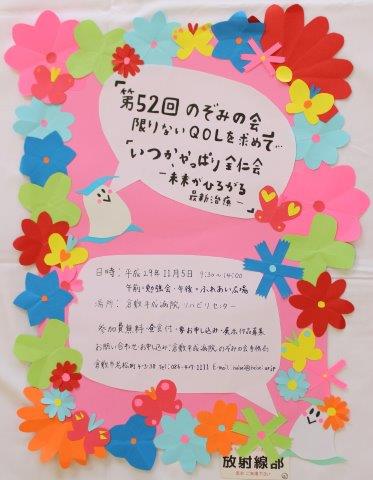 「第52回 のぞみの会
限りないQOLを求めて…
「いつかやっぱり 全仁会
－未来がひろがる
最新治療－
日時：平成29年11月5日 9:30～14:00
午前・勉強会・午後・ふれあい広場
場所：倉敷平成病院リハビリセンター
参加費無料・昼食付・要お申し込み・展示作品募集
お問い合わせ・お申し込み：倉敷平成病院のぞみの会事務局
倉敷市老松町4-3-38 Tel:086-427-1111 E-mail
放射線部